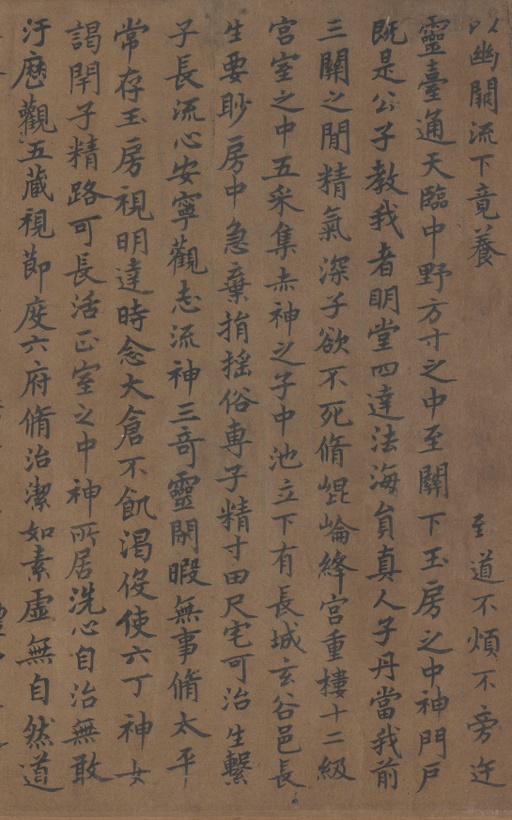 以幽關流下竟養 至道不煩不旁迕
靈臺通天臨中野方寸之中至關下玉房之中神門戶
既是公子教我者明堂四達法海負真人子丹當我前
三關之閒精氣深子欲不死脩崐崘絳宮重樓十二級
宮室之中五采集赤神之子中池立下有長城玄谷邑長
生要眇房中急棄捐搖俗專子精寸田尺宅可治生繫
子長流心安寧觀志流神三奇靈閑暇無事脩太平
常存玉房視明達時念大倉不飢渴伇使六丁神女
謁閇子精路可長活正室之中神所居洗心自治無敢
汙歷觀五藏視節度六府脩治潔如素虛無自然道